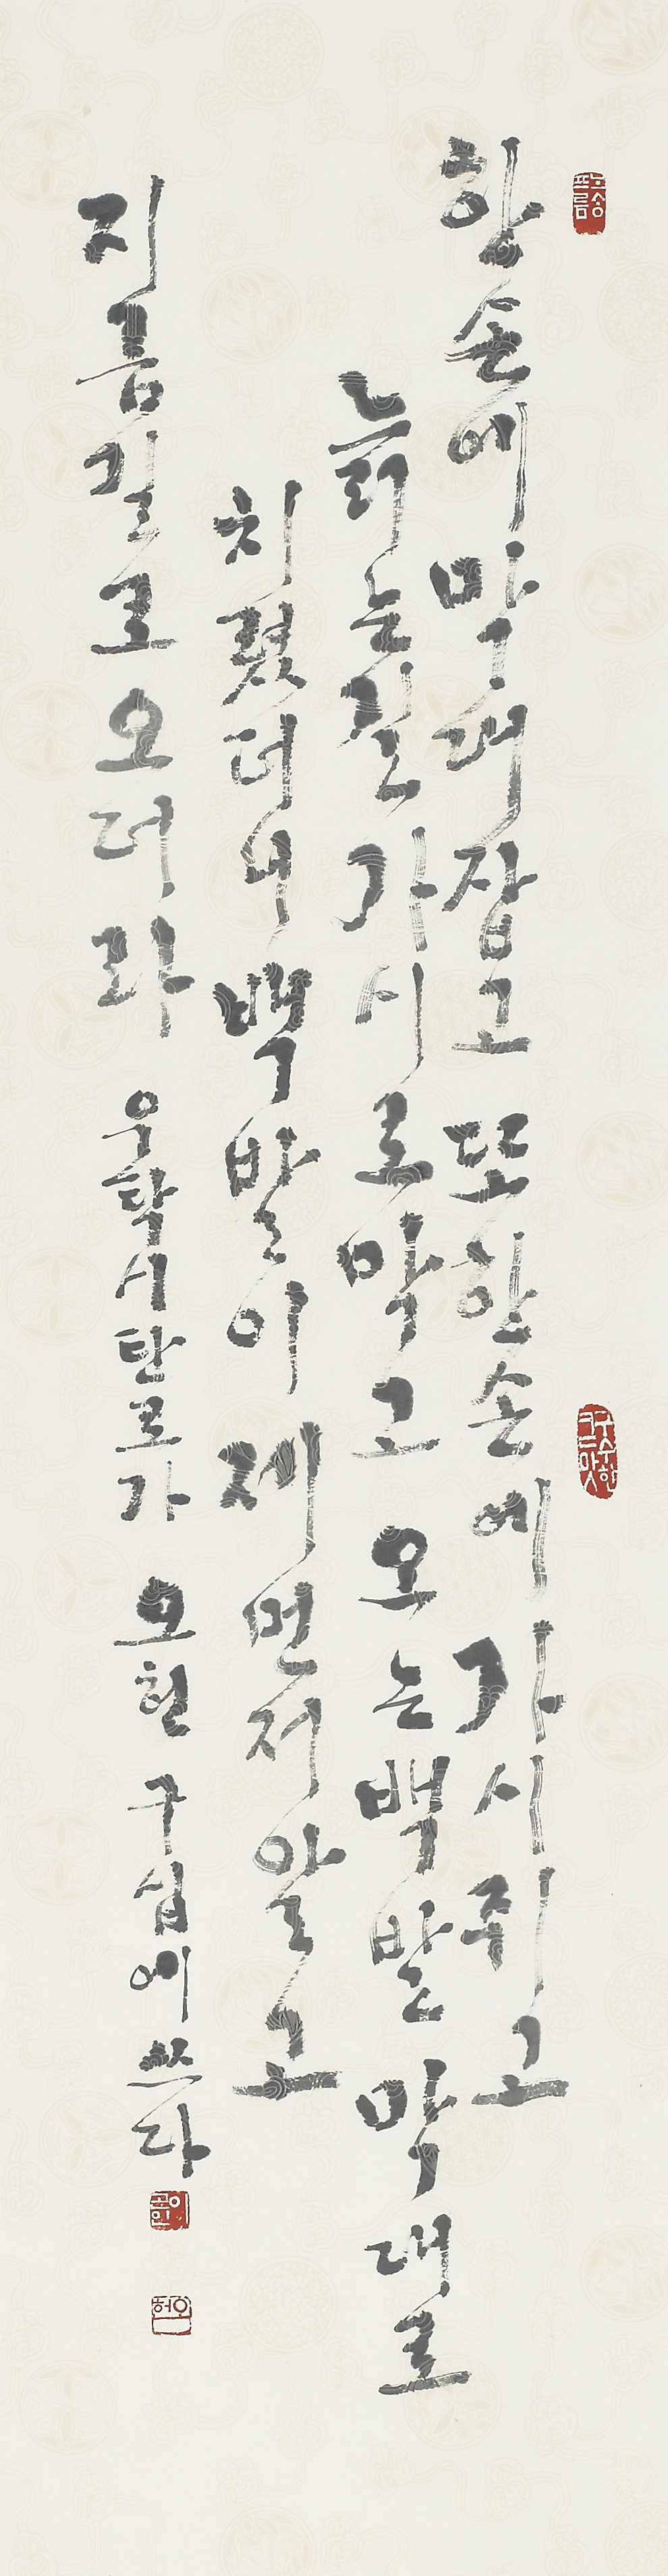 한 손에 막대 잡고 또 한 손에 가시 쥐고
늙는 길 가시로 막고 오는 백발 막대로
치렸더니 백발이 제 먼저 알고
지름길로 오더라 우탁 시 탄로가 오헌 구십에 쓰다
구수한 큰맛
오헌